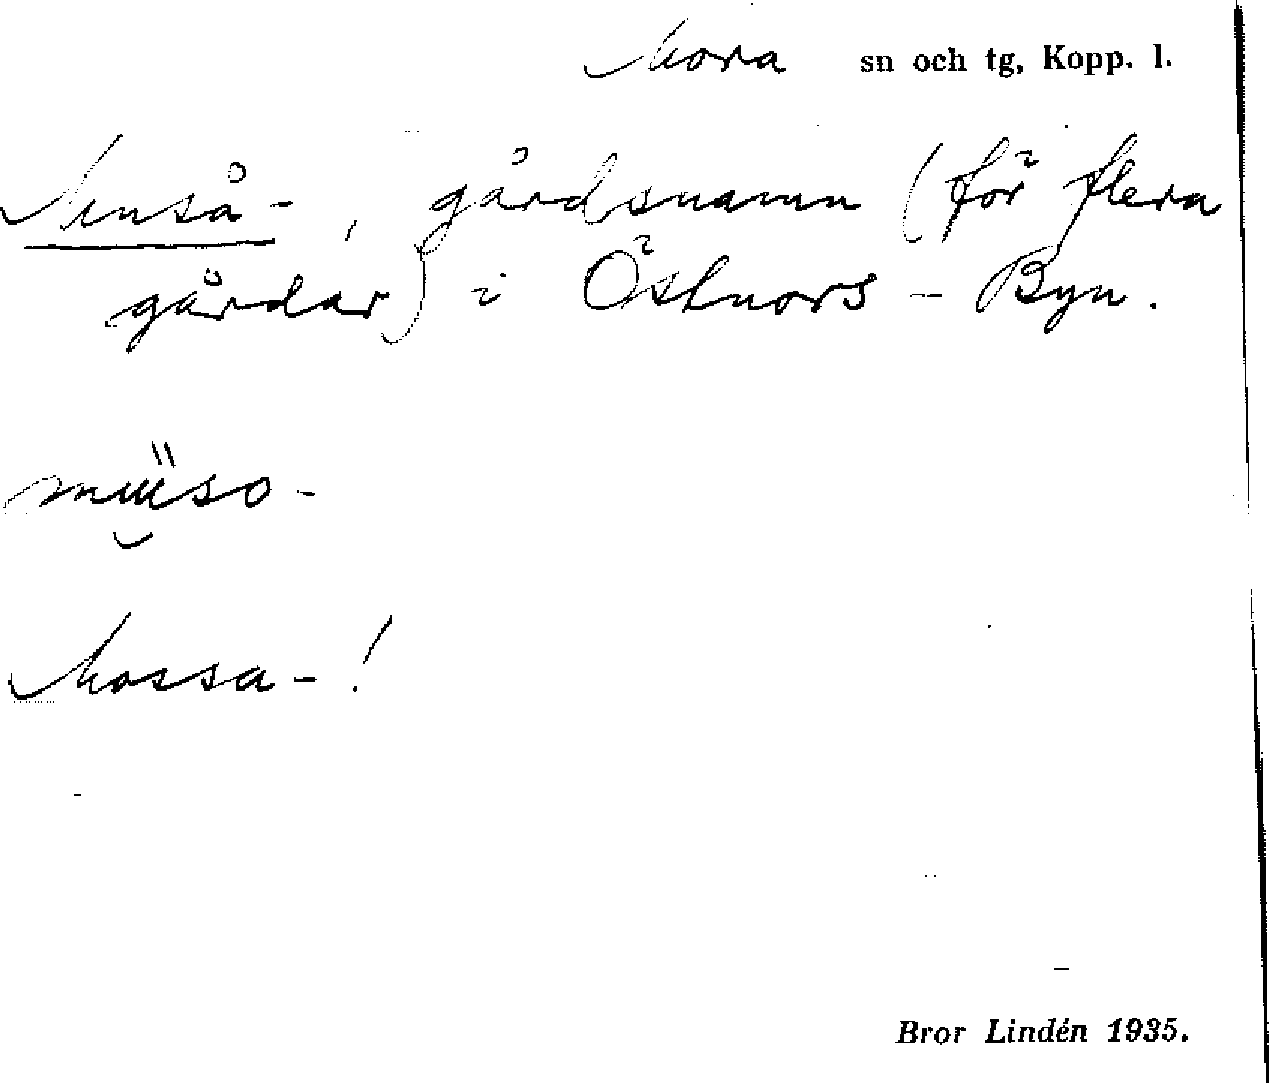 Mora sn och tg, Kopp. l.
Muså-, gårdsnamn (för flera
gårdar) i Östnors - Byn.
Mossa-!
Bror Lindén 1935.